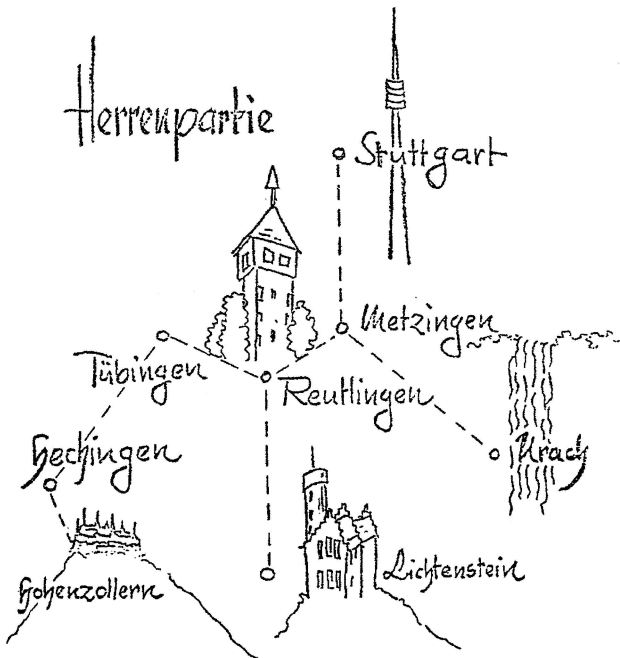 Herrenpartie
Stuttgart
Metzingen
Tübingen
Reutlingen
Hechingen
Urach
Hohenzollern
Lichtenstein